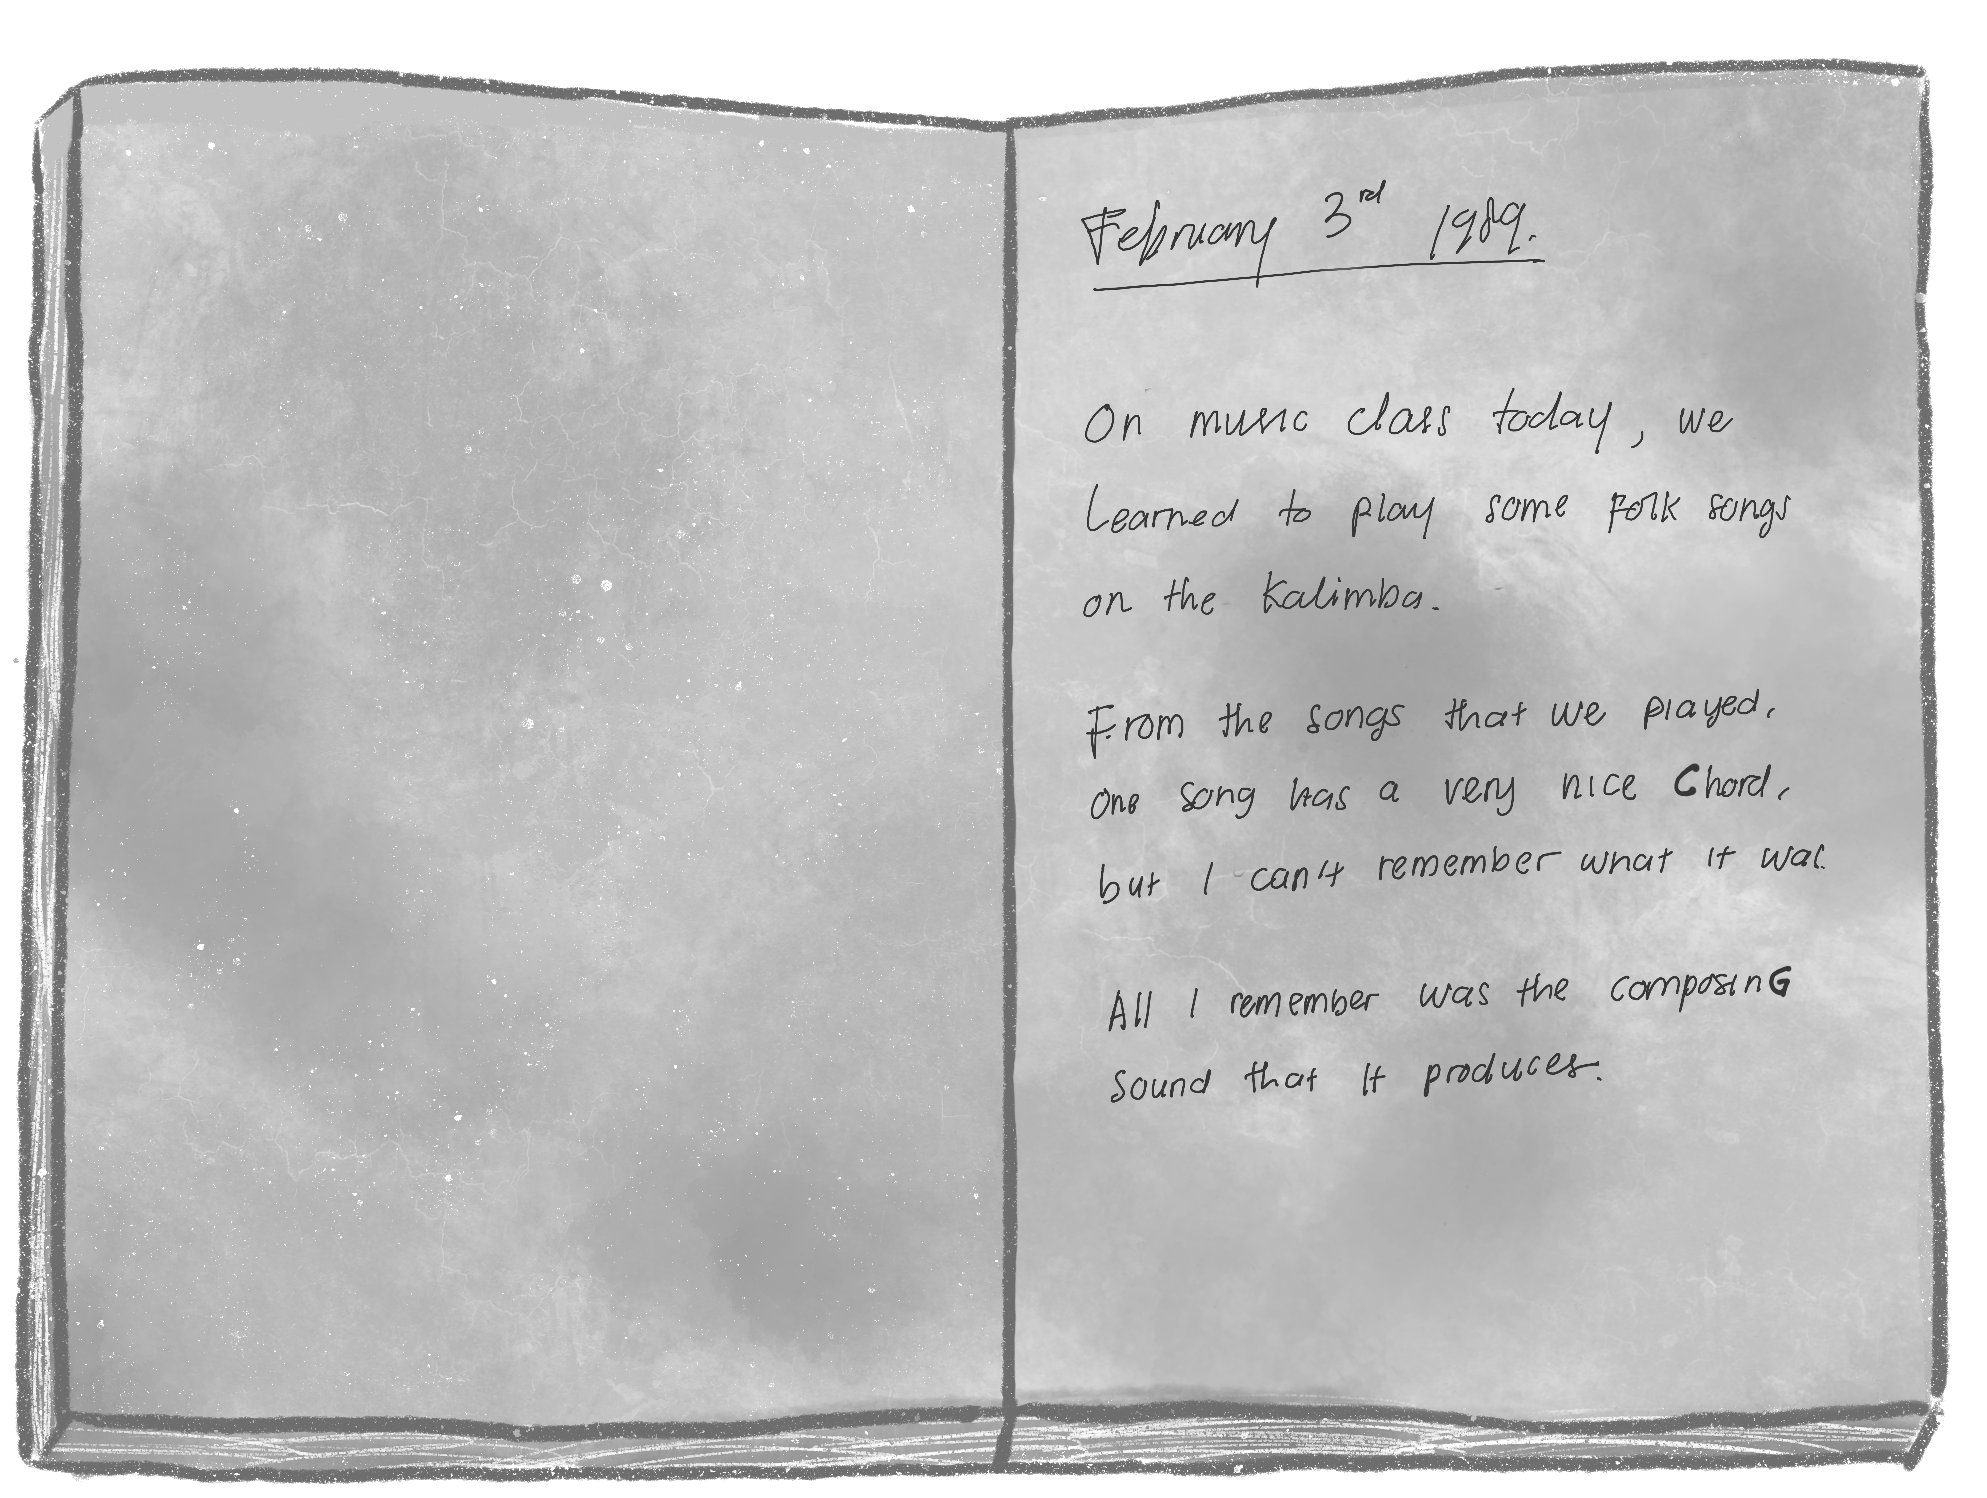 February 3rd 1989.
On music class today, we
Learned to play some folk songs
on the Kalimba.
From the songs that we played,
one song has a very nice Chord,
but I can't remember what it was.
All I remember was the composinG
Sound that It produces.